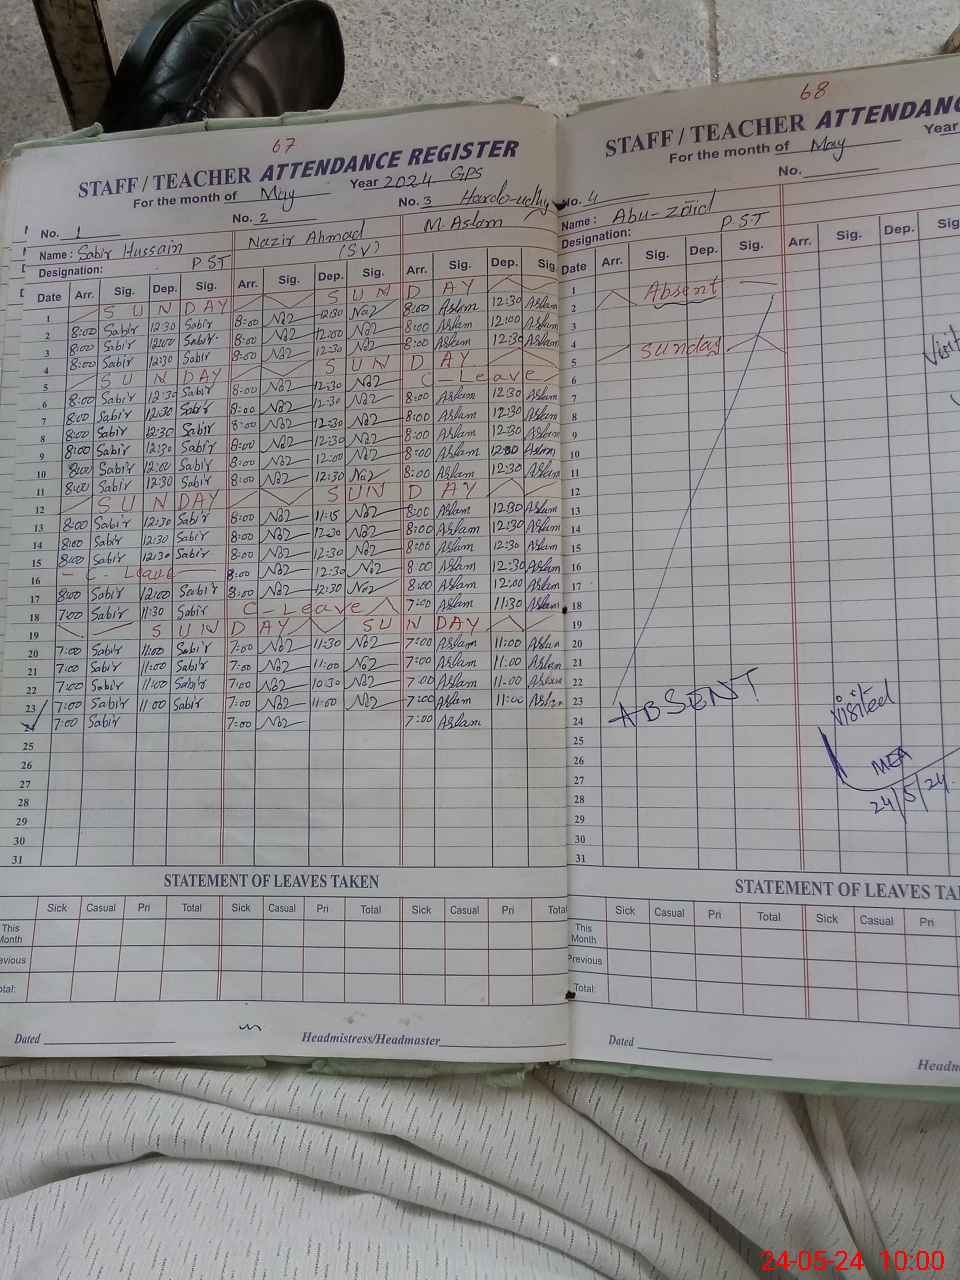 67
STAFF / TEACHER ATTENDANCE REGISTER
For the month of May Year 2024 GPS
No. 1 No. 2 No. 3
Name : Sabir Hussain Nazir Ahmad M. Aslam
Designation: PST (SV)
Date Arr. Sig. Dep. Sig. Arr. Sig. Dep. Sig. Arr. Sig. Dep. Sig.
1 SUNDAY SUNDAY
2 8:00 Sabir 12:30 Sabir 8:00 12:30 8:00 Aslam 12:30 Aslam
3 8:00 Sabir 12:00 Sabir 8:00 12:00 8:00 Aslam 12:00 Aslam
4 8:00 Sabir 12:30 Sabir 8:00 12:30 8:00 Aslam 12:30 Aslam
5 SUNDAY SUNDAY
6 8:00 Sabir 12:30 Sabir 8:00 12:30 C-Leave
7 8:00 Sabir 12:30 Sabir 8:00 12:30 8:00 Aslam 12:30 Aslam
8 8:00 Sabir 12:30 Sabir 8:00 12:30 8:00 Aslam 12:30 Aslam
9 8:00 Sabir 12:30 Sabir 8:00 12:30 8:00 Aslam 12:30 Aslam
10 8:00 Sabir 12:00 Sabir 8:00 12:00 8:00 Aslam 12:00 Aslam
11 8:00 Sabir 12:30 Sabir 8:00 12:30 8:00 Aslam 12:30 Aslam
12 SUNDAY SUNDAY
13 8:00 Sabir 12:30 Sabir 8:00 11:15 8:00 Aslam 12:30 Aslam
14 8:00 Sabir 12:30 Sabir 8:00 12:30 8:00 Aslam 12:30 Aslam
15 8:00 Sabir 12:30 Sabir 8:00 12:30 8:00 Aslam 12:30 Aslam
16 C-Leave 8:00 12:30 8:00 Aslam 12:30 Aslam
17 8:00 Sabir 12:00 Sabir 8:00 12:30 8:00 Aslam 12:00 Aslam
18 7:00 Sabir 11:30 Sabir C-Leave 7:00 Aslam 11:30 Aslam
19 SUNDAY SUNDAY
20 7:00 Sabir 11:00 Sabir 7:00 11:30 7:00 Aslam 11:00 Aslam
21 7:00 Sabir 11:00 Sabir 7:00 11:00 7:00 Aslam 11:00 Aslam
22 7:00 Sabir 11:00 Sabir 7:00 10:30 7:00 Aslam 11:00 Aslam
23 7:00 Sabir 11:00 Sabir 7:00 11:00 7:00 Aslam 11:00
24 7:00 Sabir 7:00 7:00 Aslam
25
26
27
28
29
30
31
STATEMENT OF LEAVES TAKEN
Sick Casual Pri Total Sick Casual Pri Total Sick Casual Pri
This Month
Dated Headmistress/Headmaster
68
STAFF / TEACHER
For the month of May Year
No. 4 No.
Name : Abu-zaid
Designation: PST
Date Arr. Sig. Dep. Sig. Arr. Sig. Dep. Sig.
1
2 Absent
3
4
5 Sunday
6
7
8
9
10
11
12
13
14
15
16
17
18
19
20
21
22
23
24 ABSENT
visited
25
26
27 MEA
28 24/5/24
29
30
31
STATEMENT OF LEAVES
Sick Casual Pri Total Sick Casual Pri
This Month
Previous
Total:
Dated
24-05-24 10:00